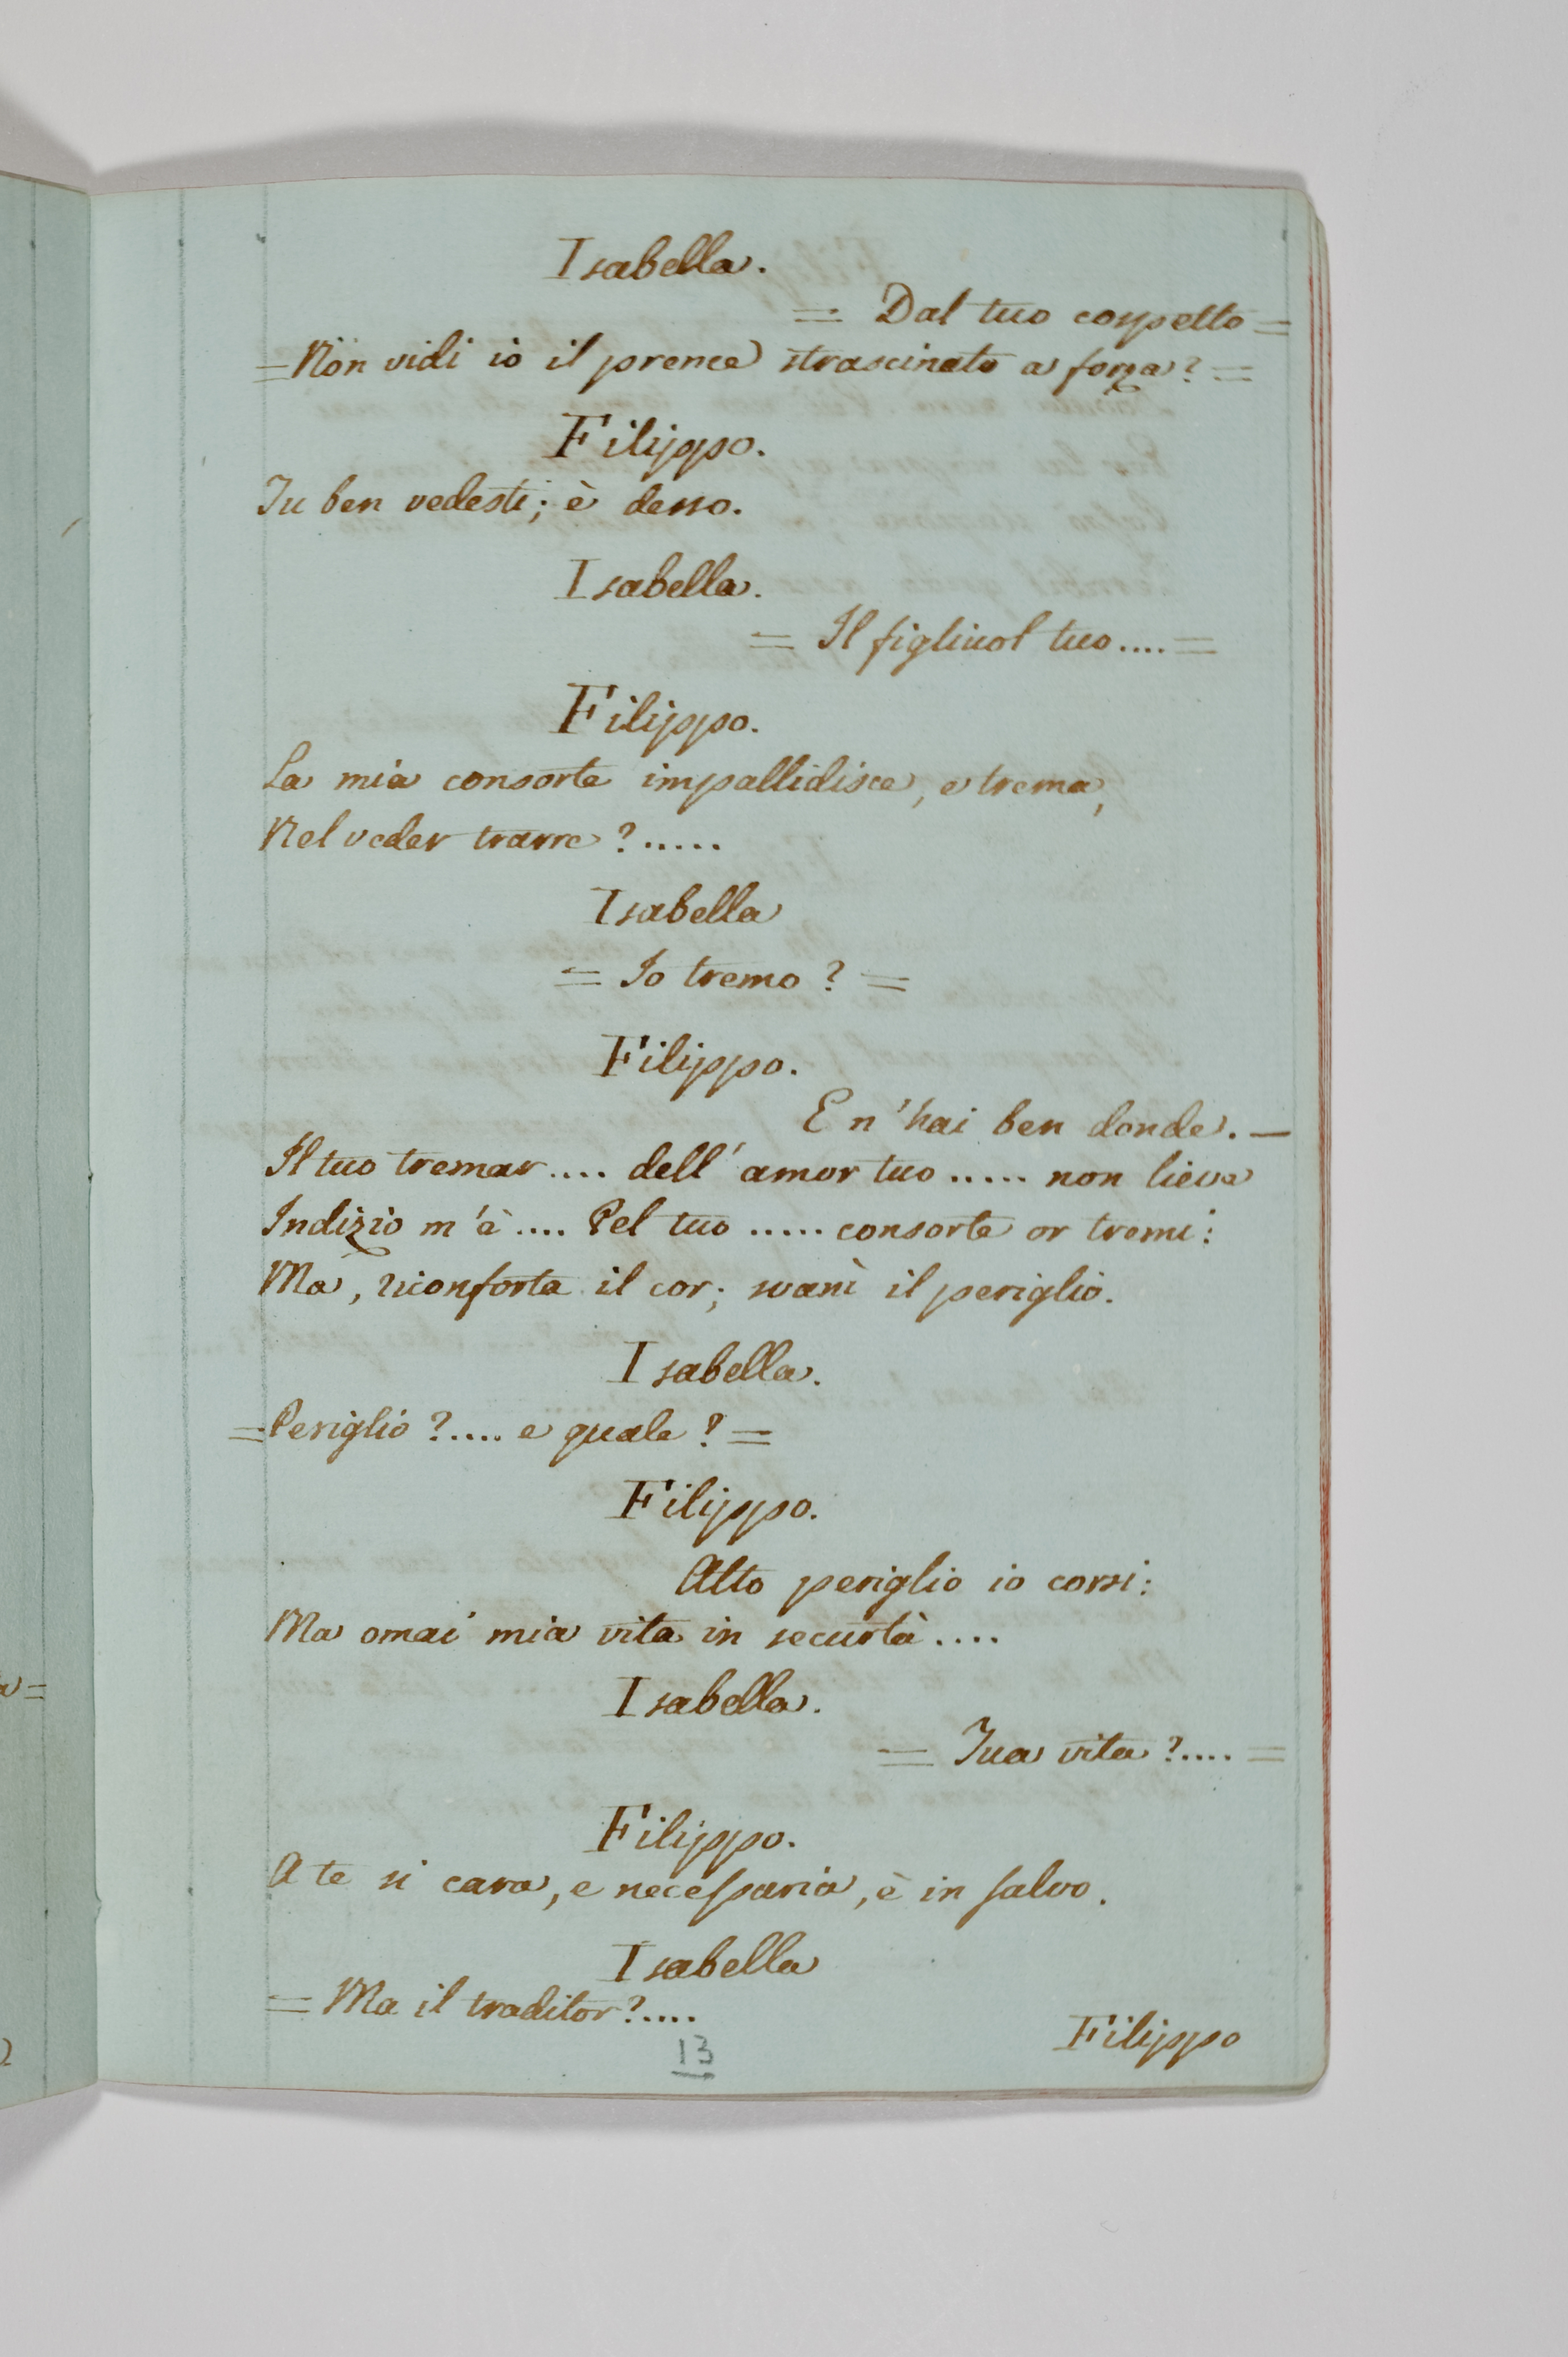 Isabella.
= Dal tuo cospetto =
= Non vidi io il prence strascinato a forza? =
Filippo.
Tu ben vedesti; è desso.
Isabella.
= Il figliuol tuo.... =
Filippo.
La mia consorte impallidisce, e trema,
Nel veder trarre?.....
Isabella
= Io tremo? =
Filippo.
E n'hai ben donde. —
Il tuo tremar.... dell'amor tuo..... non lieve
Indizio m'è.... Pel tuo..... consorte or tremi:
Ma, riconforta il cor; svanì il periglio.
Isabella.
= Periglio?.... e quale? =
Filippo.
Alto periglio io corsi:
Ma omai mia vita in securtà....
Isabella.
= Tua vita?.... =
Filippo.
A te sì cara, e necessaria, è in salvo.
Isabella
= Ma il traditor?....
Filippo
13